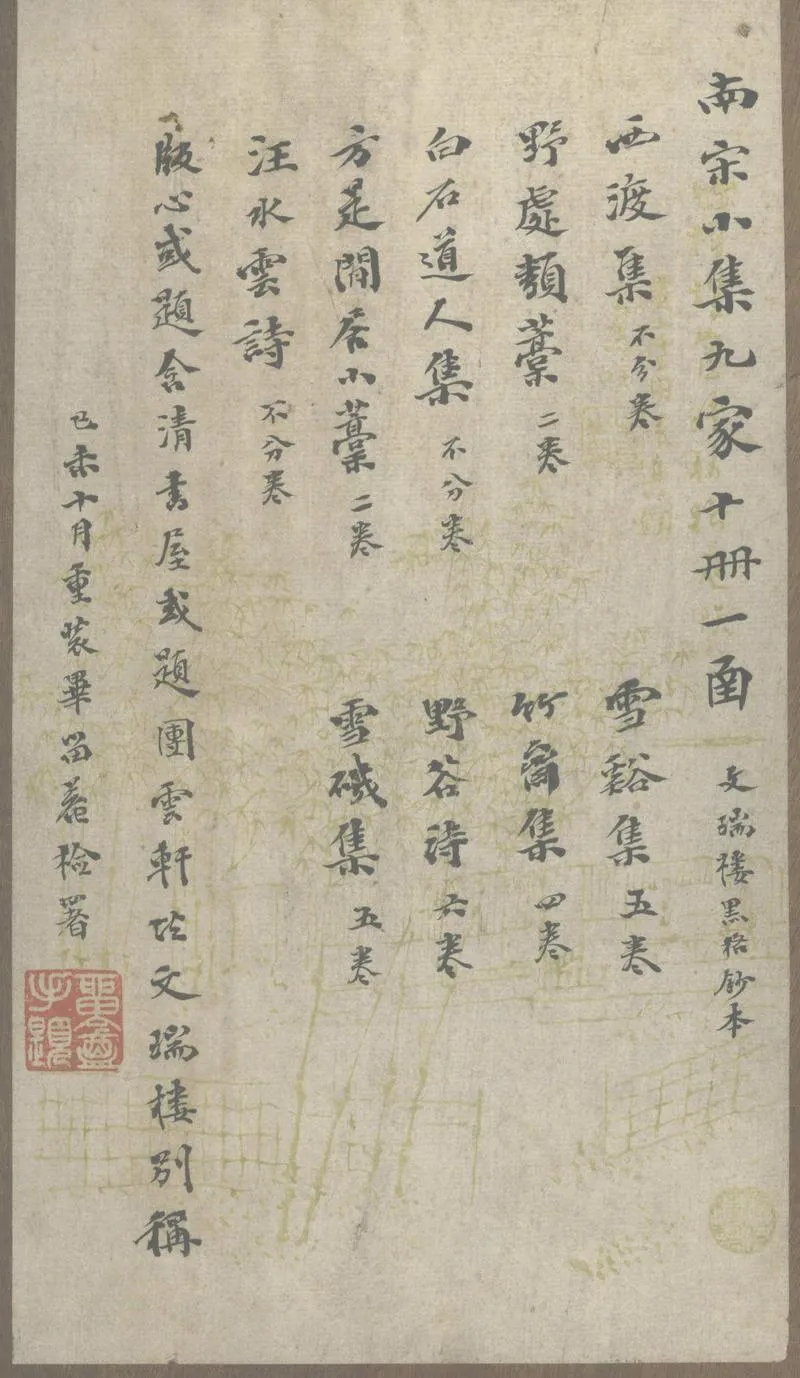 南宋小集九家十册一函 文瑞樓黑格鈔本
西渡集 不分卷 雪谿集 五卷
野處類藁 二卷 竹齋集 四卷
白石道人集 不分卷 野谷詩 六卷
方是閒居小藁 二卷 雪磯集 五卷
汪水雲詩 不分卷
版心或題含清書屋或題團雲軒皆文瑞樓別稱
己未十月重裝畢檢署